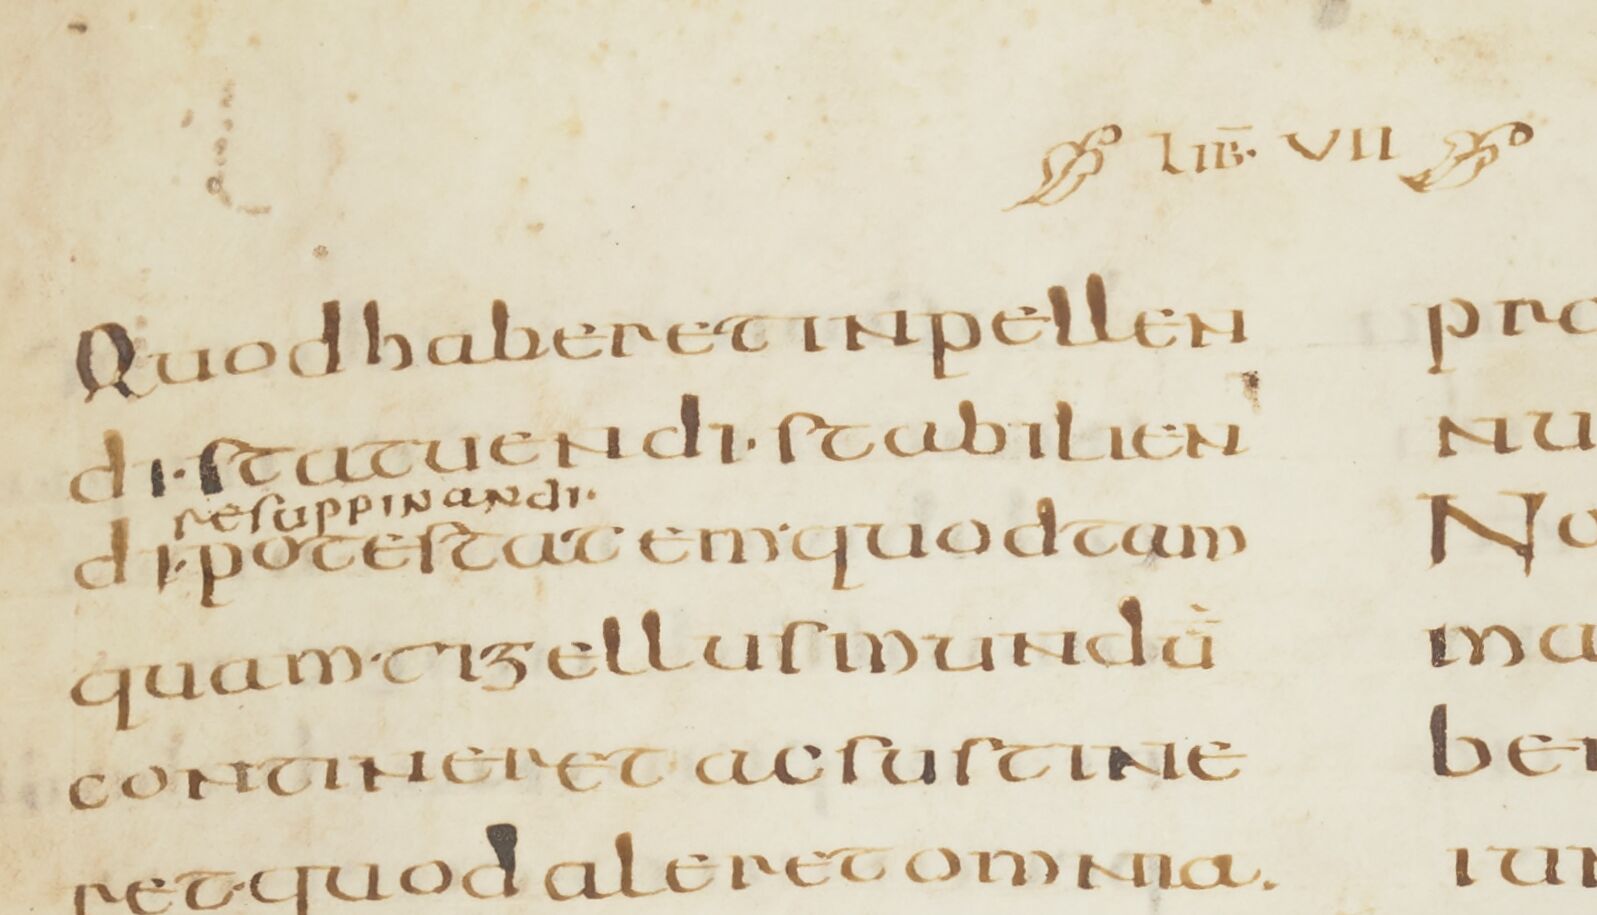 LIB̄· VII
Quod haberet inpellen
di· statuendi· stabilien
resuppinandi·
di· potestatem· quod tam
quam· tigellus mundū
contineret ac sustine
ret· quod aleret omnia.
pro
nu
No
ma
ber
iun